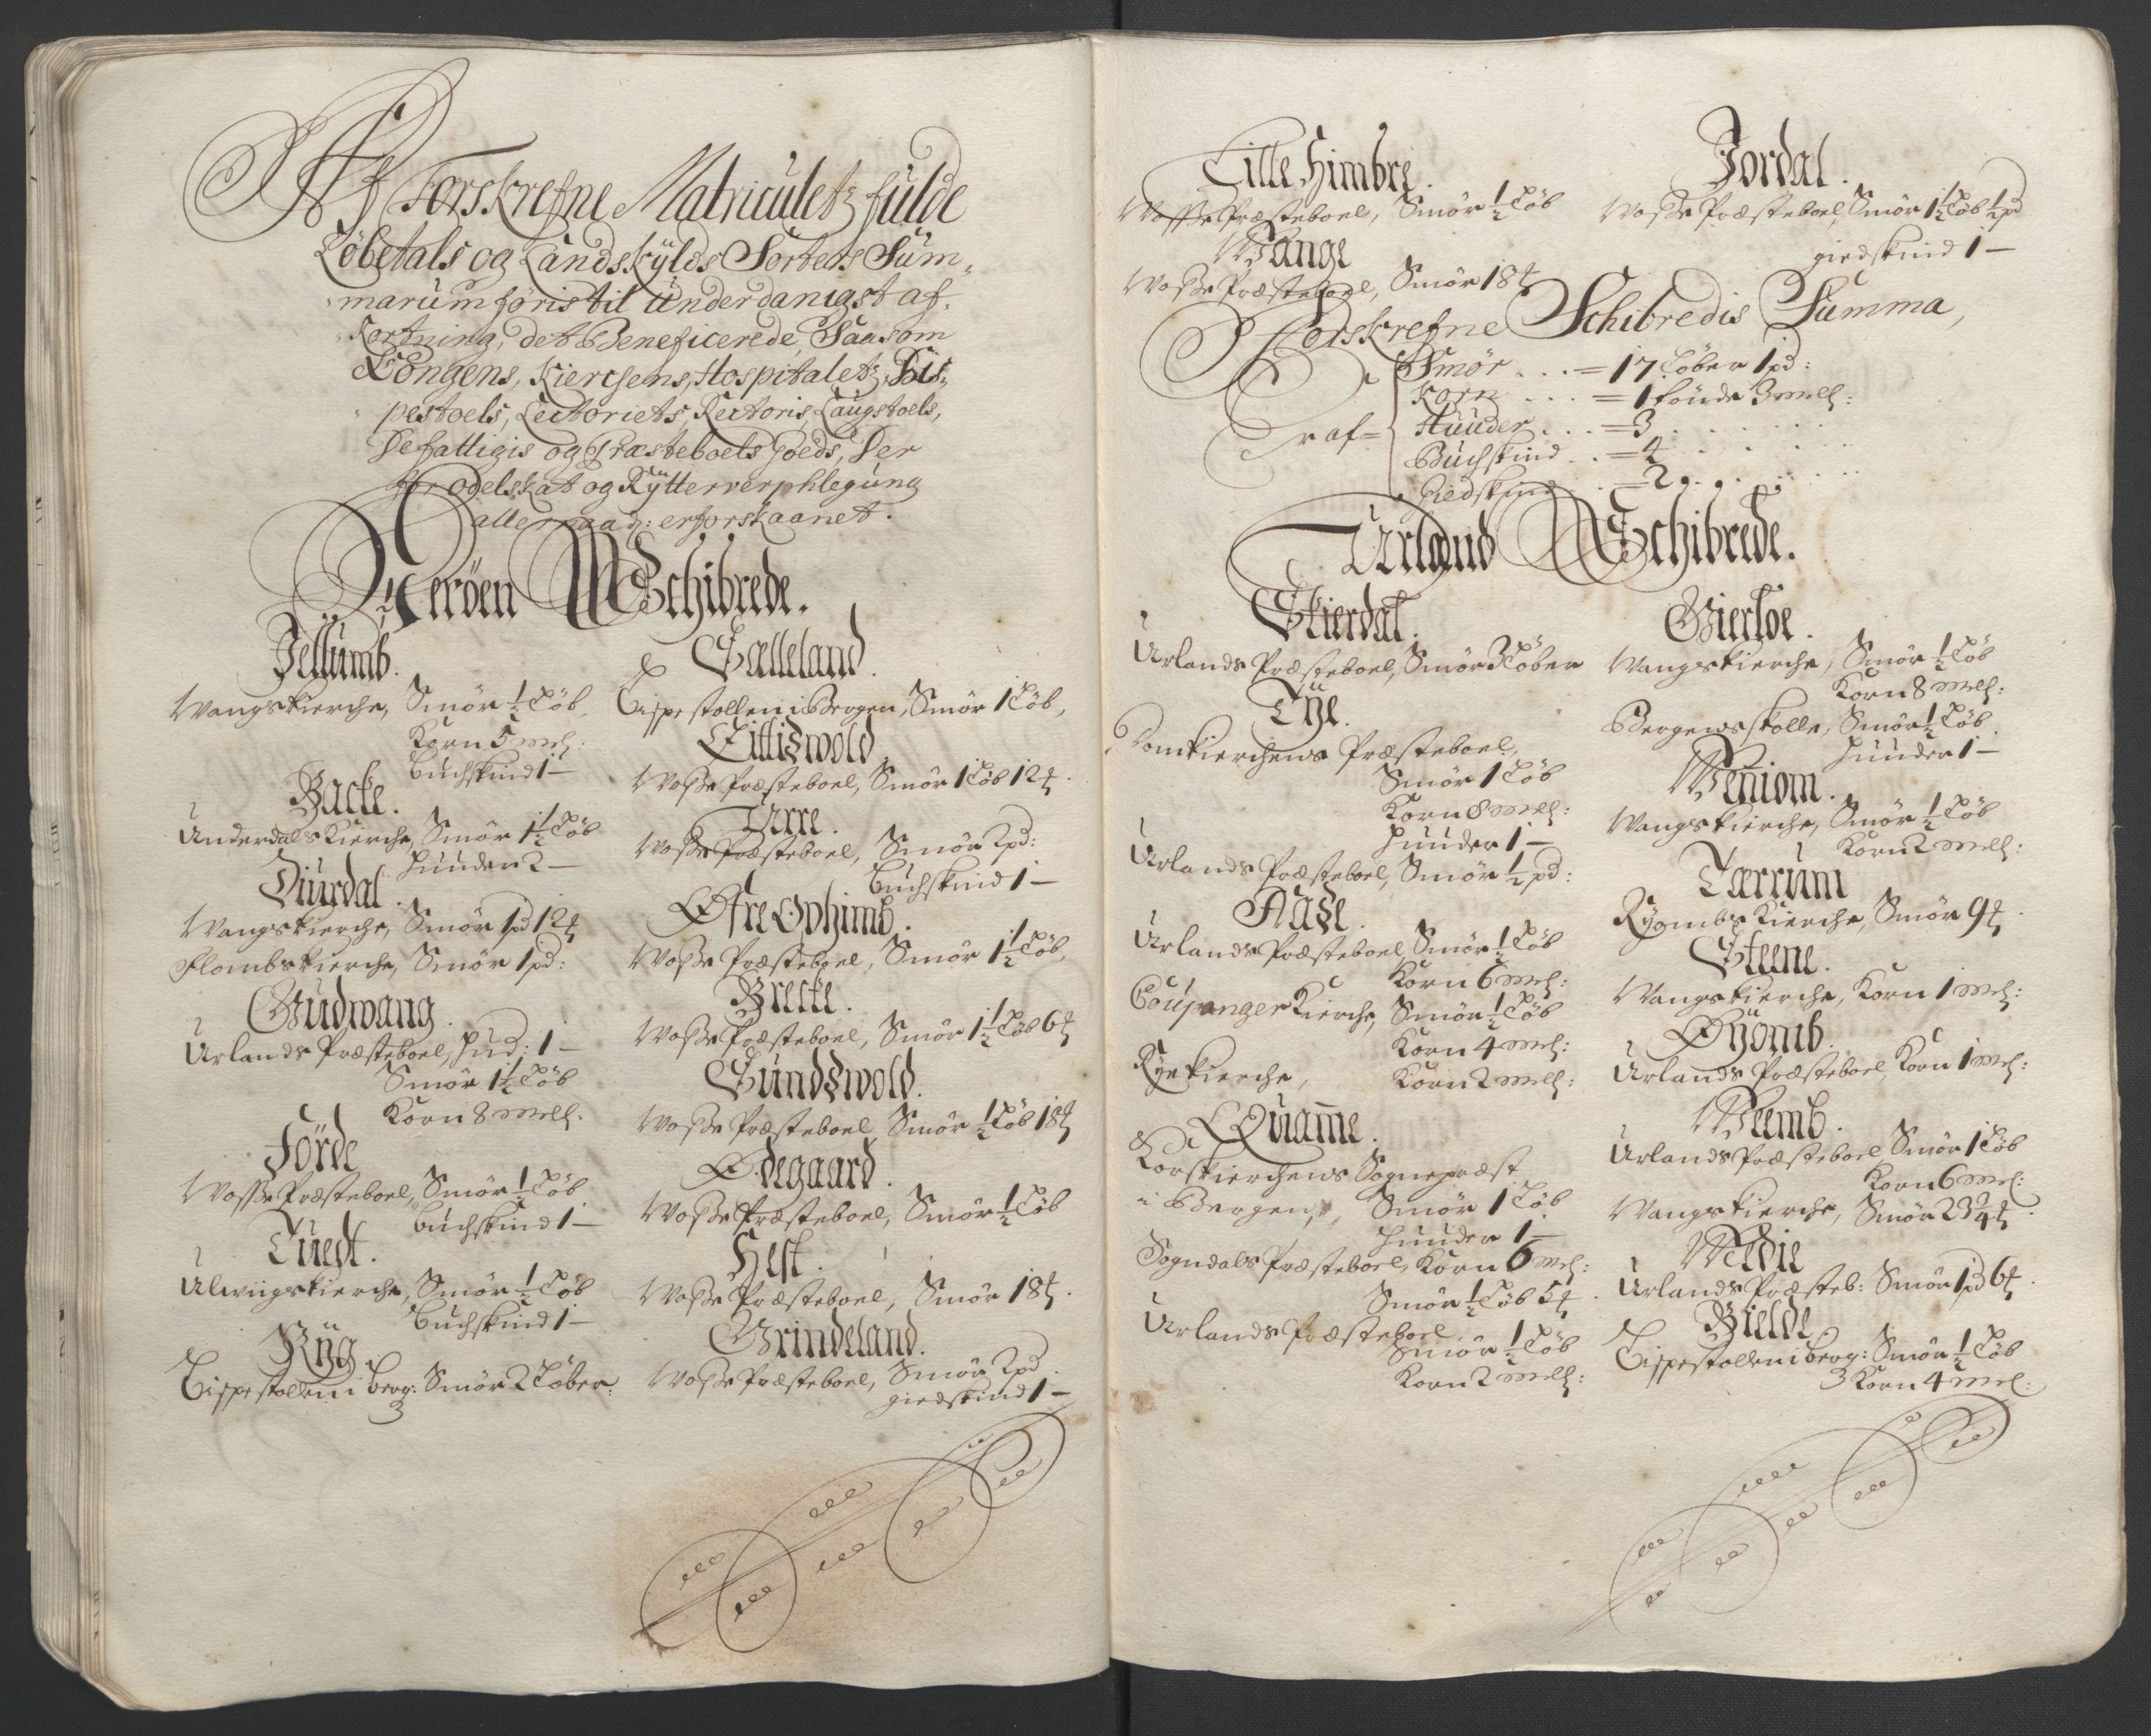 Af Forskrefne Matriculetz fulde
Løbetals og Landskÿlds Sorters Sum„
marum føris til underdanigst af„
Kortning, det Beneficerede, Saasom
Kongens, Kierchens, Hospitaletz, Bis„
pestoels, Lectoriets, Rectoris, Laugstoels,
De fattigis og Præsteboels Goeds, Der
for odelskat og Rÿtterverphlegung
allernaad: er forskaanet.
Nerøen Schibrede.
Jellumb.
Wangskierche, Smør ½ Løb
Korn 5 mel:
Buchskind 1 —
Backe.
Underdals Kierche, Smør 1½ Løb
Huuder 2 —
Diurdal.
Wangskierche, Smør 1 pd 12 ₰
Flombskierche, Smør 1 pd:
Gudwang.
Urlands Præsteboel, Hud: 1 —
Smør 1½ Løb
Korn 8 mell:
Førde
Wosse Præsteboel, Smør ½ Løb
Buchskind 1 —
Tuedt.
Ulwiigskierche, Smør ½ Løb
Buchskind 1 —
Rÿg.
Bispestollen i berg: Smør 2 Løber:
3
Sælleland.
Bispestollen i Bergen, Smør 1 Løb,
Eittiswold
Wosse Præsteboel, Smør 1 Løb 12 ₰.
Urre.
Wosse Præsteboel, Smør 2 pd:
Buchskind 1 —
Øfre Ophimb.
Wosse Præsteboel, Smør 1½ Løb,
Brecke.
Wosse Præsteboel, Smør 1½ Løb 6 ₰
Gundswold.
Wosse Præsteboel Smør ½ Løb 18 ₰
Ødegaard.
Wosse Præsteboel, Smør ½ Løb
Hest.
Wosse Præsteboel, Smør 18 ₰.
Grindeland.
Wosse Præsteboel, Smør 2 pd.
giedskind 1 —
Lille Himbre.
Wosse Præsteboel, Smør ½ Løb
Wange
Wosse Præsteboel, Smør 18 ₰
Jordal.
Wosse Præsteboel, Smør 1½ Løb ½ pd
giedskind 1 —
Forskrefne Schibredis Summa,
Smør . . . = 17 Løber 1 pd:
Korn . . . = 1 tønde 3 mell:
Huuder . . . = 3 . . . .
Buchskind . . = 4 . . . .
Giedskind . . = 2 . . . .
raf =
Urland Schibrede.
Skierdal.
Urlands Præsteboel, Smør 3 Løber
Tÿe.
Domkierchens Præsteboel,
Smør 1 Løb
Korn 8 mell:
Huuder 1 —
Urlands Præsteboel, Smør ½ pd:
Aase.
Urlands Præsteboel Smør ½ Løb
Korn 6 mel:
Coupanger Kierche, Smør ½ Løb
Korn 4 mel:
Rÿe kierche, Korn 2 mell:
Quamme.
Korskierchens Sognepræst
i Bergen, Smør 1 Løb
Huuder 1 —
Sogndals Præsteboel, Korn 6 mel:
Smør ½ Løb 5 ₰.
Urlands Præsteboel
Smør ½ Løb
Korn 2 mell:
Gierløe.
Wangskierche, Smør ½ Løb
Korn 8 mell:
Bergens skolle, Smør ½ Løb
Huuder 1 —
Weniom.
Wangskierche, Smør ½ Løb
Korn 2 mell:
Tærrum
Rÿombs Kierche, Smør 9 ₰.
Steene.
Wangskierche, Korn 1 mel:
Øÿomb.
Urlands Præsteboel, Korn 1 mel:
Weemb.
Urlands Præsteboel Smør 1 Løb
Korn 6 mel:
Wangskierche, Smør 23¼ ₰.
Weldie
Urlands Præsteb: Smør 1 pd 6 ₰.
Bielde
Bispestollen i berg: Smør ½ Løb
3 Korn 4 mel: